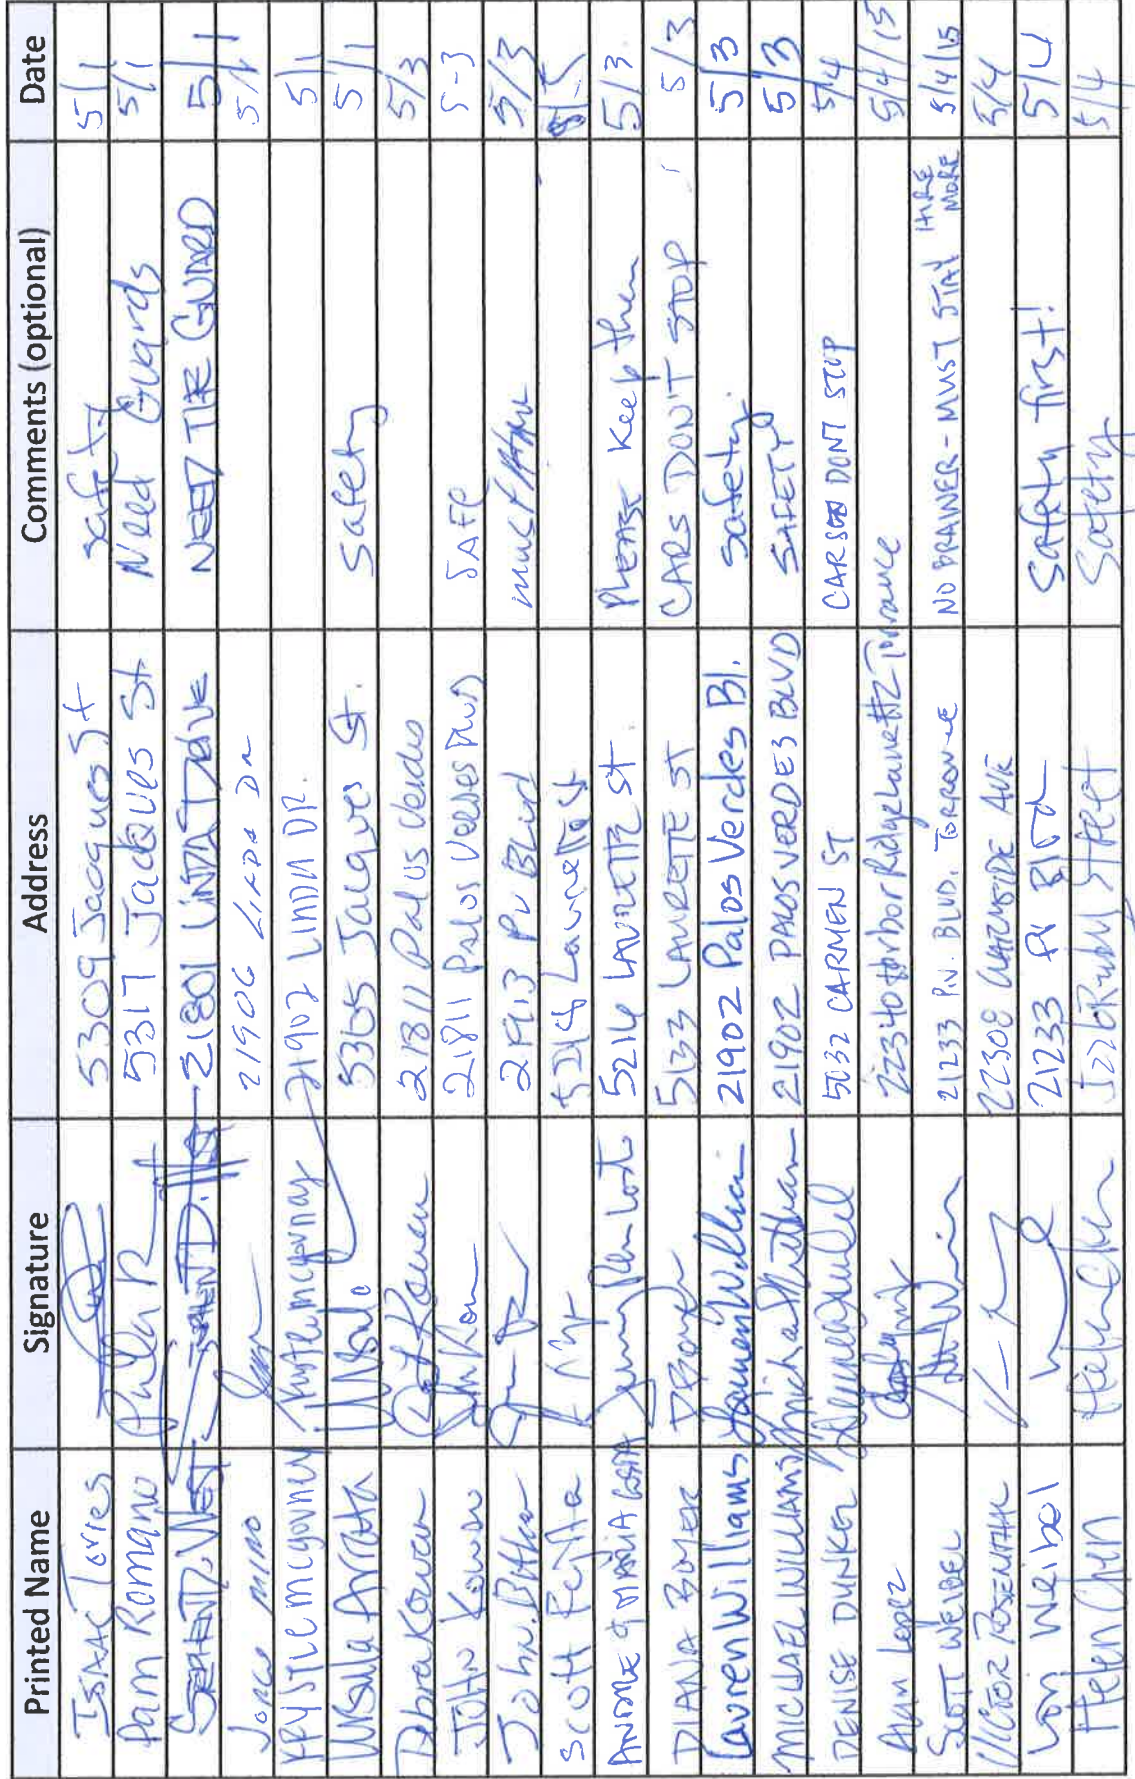 Printed Name Signature Address Comments (optional) Date
ISAAC Torres 5309 Jacques St safety 5/1
Pam Romano 5317 Jacques St Need Guards 5/1
WEST 21801 LINDA DRIVE NEED THE GUARD 5/1
21906 LINDA Dr 5/1
KRYSTLE McGovney 21902 LINDA DR. 5/1
Ursula Arrata 5365 Jacques St. Safety 5/1
Debra Kowen 21811 Palos Verdes 5/3
JOHN Kowen 21811 Palos Verdes BLVD SAFE 5-3
John 21913 PV BLVD must have 5/3
Scott Lavrette St
& MARIA COSTA 5214 LAVRETTE ST. PLEASE Keep them 5/3
DIANA BOYER D Boyer 5133 LAURETTE ST CARS DON'T STOP! 5/3
Lauren Williams Lauren Williams 21902 Palos Verdes Bl. Safety. 5/3
MICHAEL WILLIAMS 21902 PALOS VERDES BLVD SAFETY 5/3
DENISE DUNKER 5032 CARMEN ST CARS DONT STOP 5/4
Alan Lopez 22340 Harbor Ridge Lane #2 Torrance 5/4/15
SCOTT WEIBEL 21233 P.V. BLVD. TORRANCE NO BRAINER - MUST STAY HIRE MORE 5/4/15
VICTOR ROSENTHAL 22308 AVE 5/4
Lori Weibel 21233 PV Blvd Safety first! 5/4
Helen Chen Helen Chen Ruby Street Safety 5/4